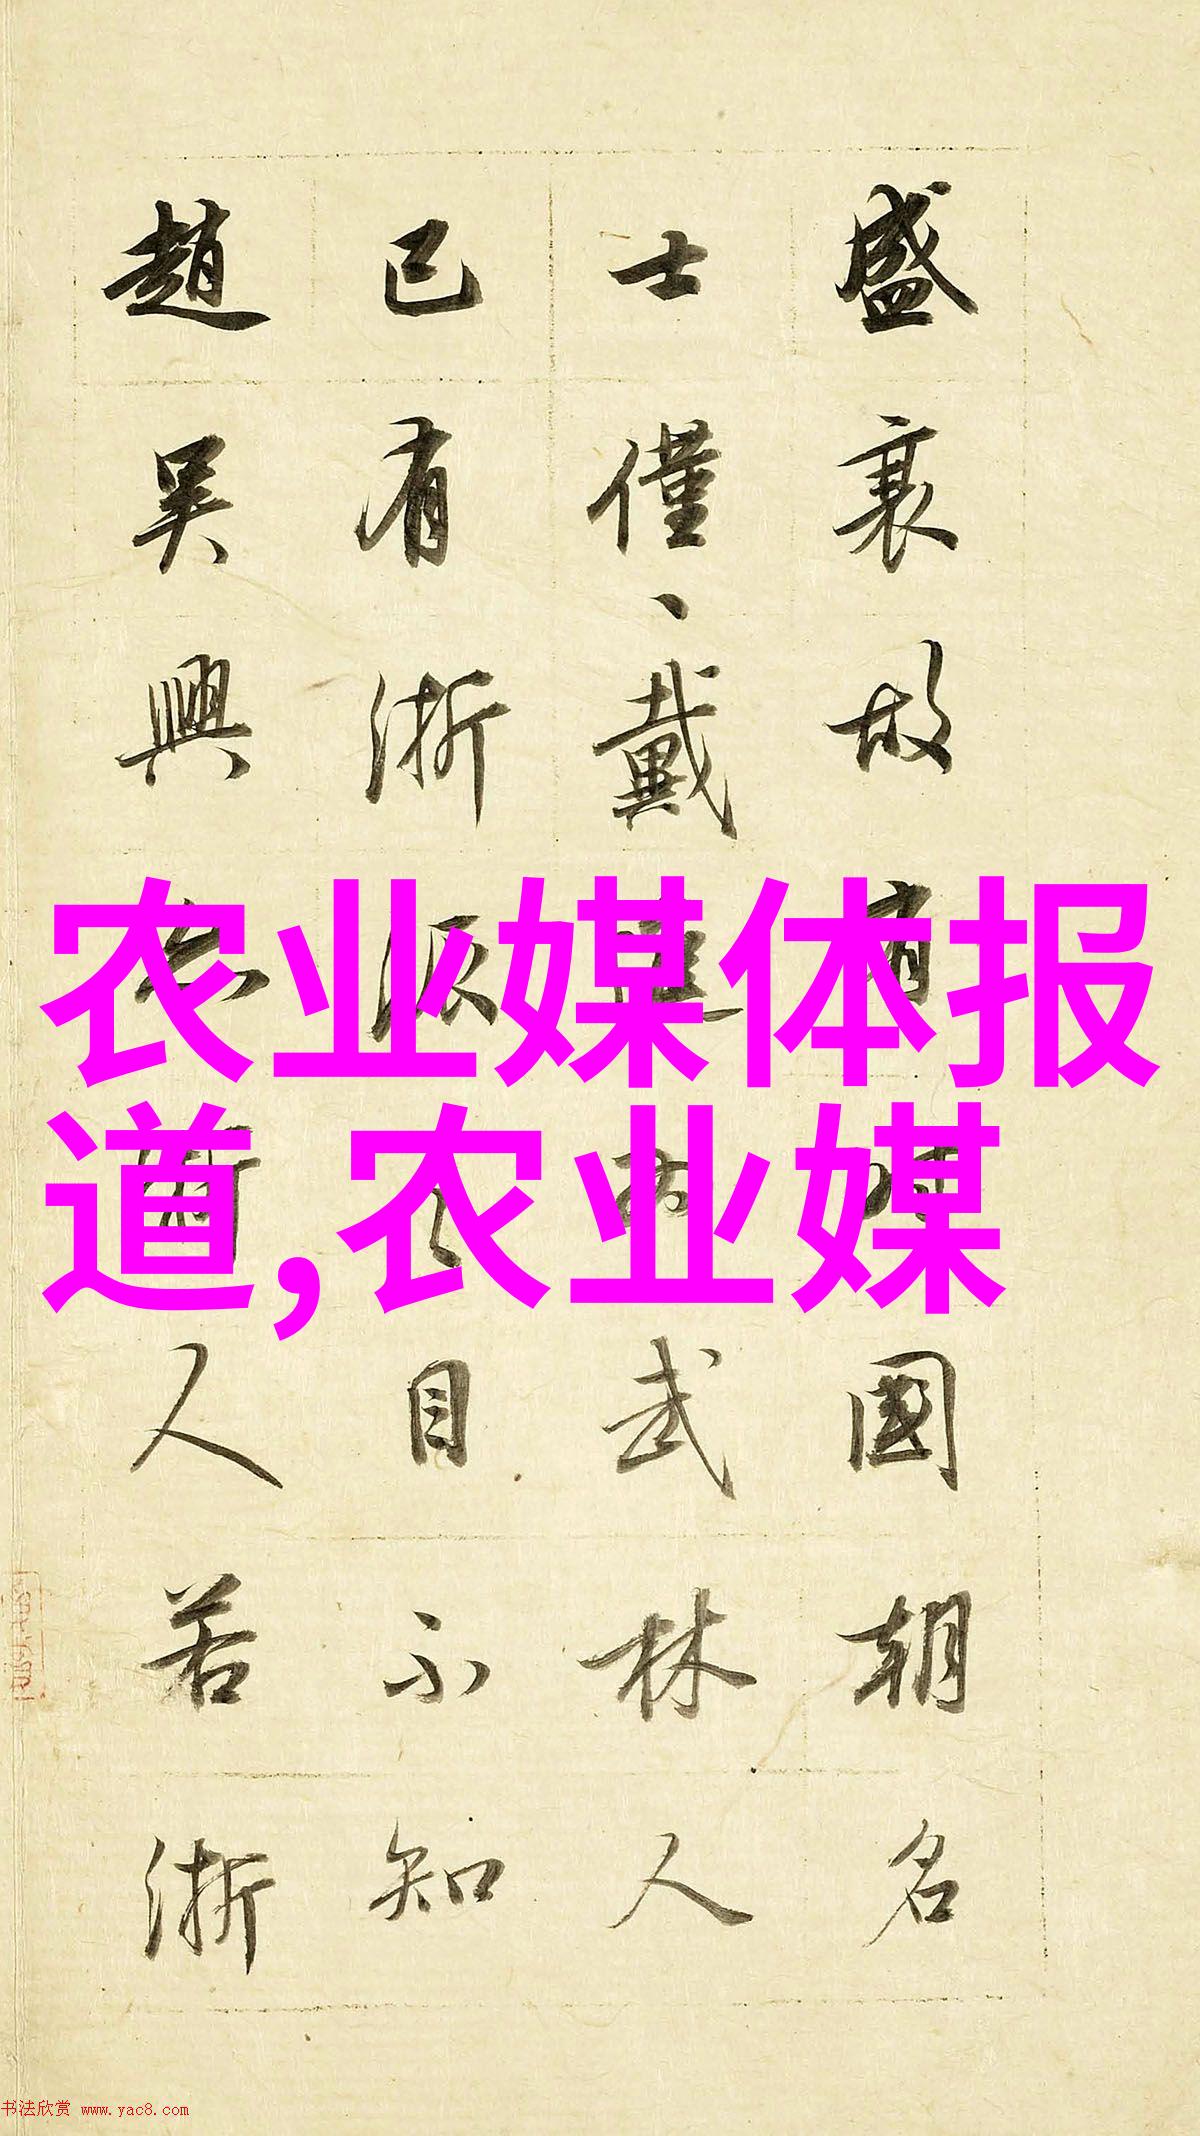 盛衰故有時國朝名
士僅戴進為武林人
已有浙派之目不知
趙吳興亦浙人若浙
农业媒体报
道,农业媒
书法欣赏 www.yac8.com